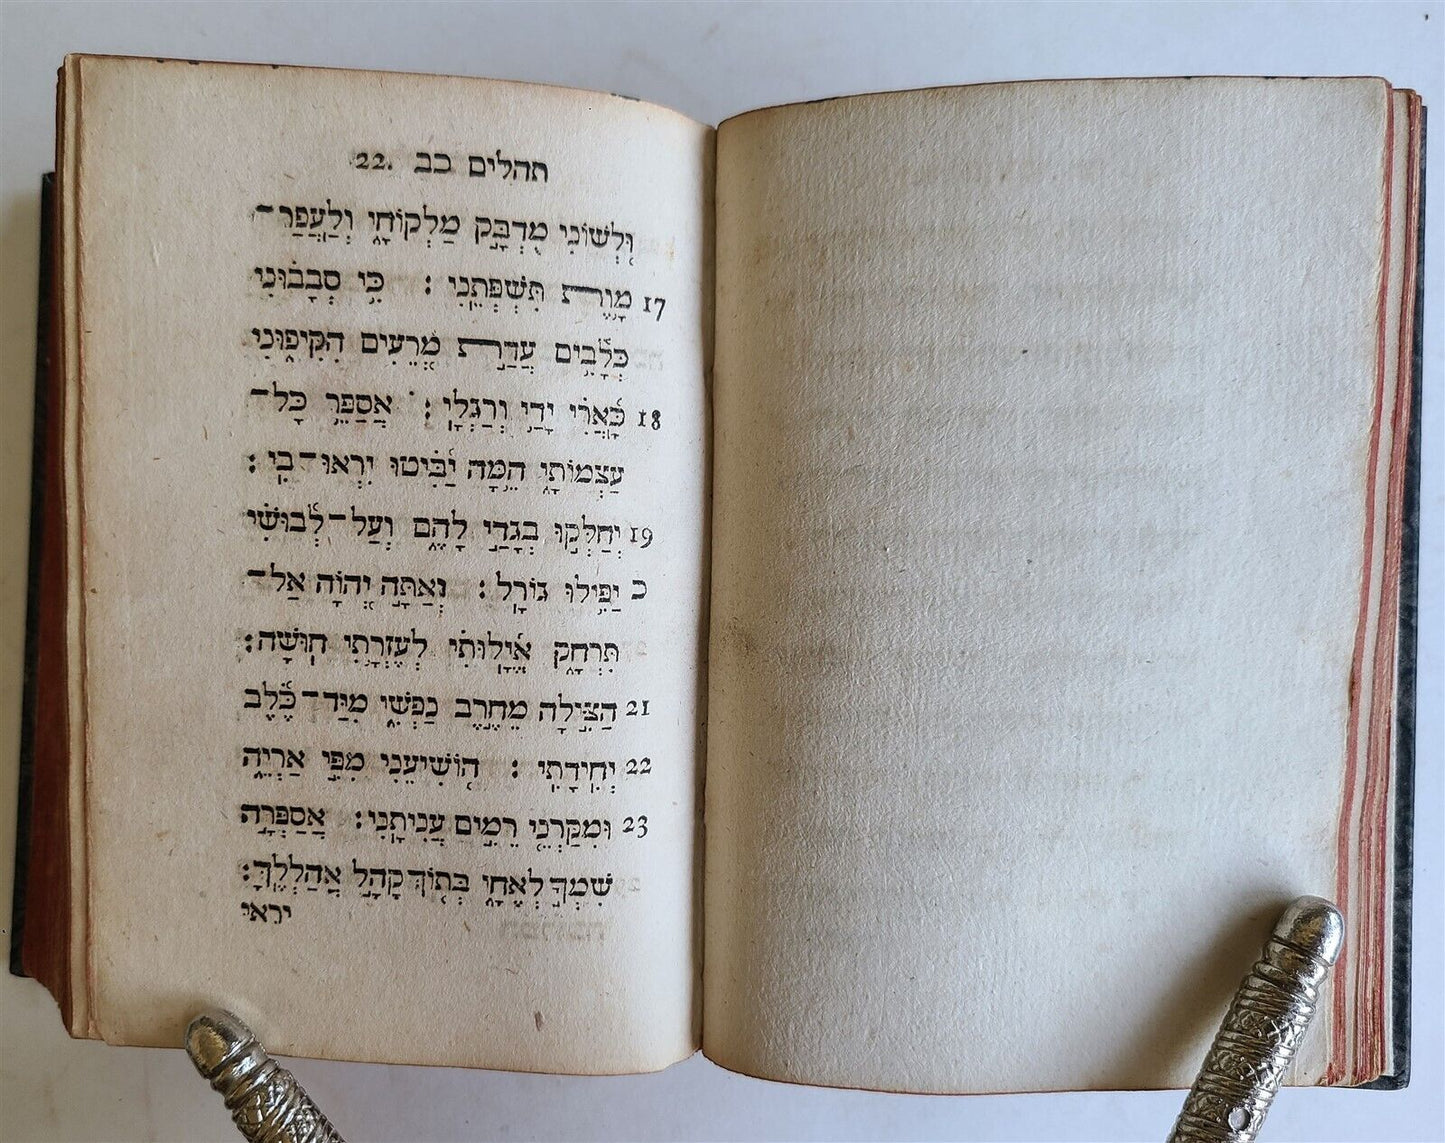 תהלים כב .22
וּ֭לְשׁוֹנִי מֻדְבָּ֣ק מַלְקוֹחָ֑י וְלַעֲפַר־
17 מָ֥וֶת תִּשְׁפְּתֵֽנִי׃ כִּ֥י סְבָב֗וּנִי
כְּלָ֫בִ֥ים עֲדַ֣ת מְ֭רֵעִים הִקִּיפ֑וּנִי
18 כָּ֝אֲרִ֗י יָדַ֥י וְרַגְלָֽי׃ אֲסַפֵּ֥ר כָּל־
עַצְמוֹתָ֑י הֵ֥מָּה יַ֝בִּ֗יטוּ יִרְאוּ־בִֽי׃
19 יְחַלְּק֣וּ בְגָדַ֣י לָהֶ֑ם וְעַל־לְ֝בוּשִׁ֗י
כ יַפִּ֥ילוּ גוֹרָֽל׃ וְאַתָּ֣ה יְ֭הוָה אַל־
תִּרְחָ֑ק אֱ֝יָלוּתִ֗י לְעֶזְרָ֥תִי חֽוּשָׁה׃
21 הַצִּ֣ילָה מֵחֶ֣רֶב נַפְשִׁ֑י מִיַּד־כֶּ֝֗לֶב
22 יְחִידָתִֽי׃ ה֭וֹשִׁיעֵנִי מִפִּ֣י אַרְיֵ֑ה
23 וּמִקַּרְנֵ֖י רֵמִ֣ים עֲנִיתָֽנִי׃ אֲסַפְּרָ֣ה
שִׁמְךָ֣ לְאֶחָ֑י בְּת֖וֹךְ קָהָ֣ל אֲהַלְלֶֽךָּ׃
יראי